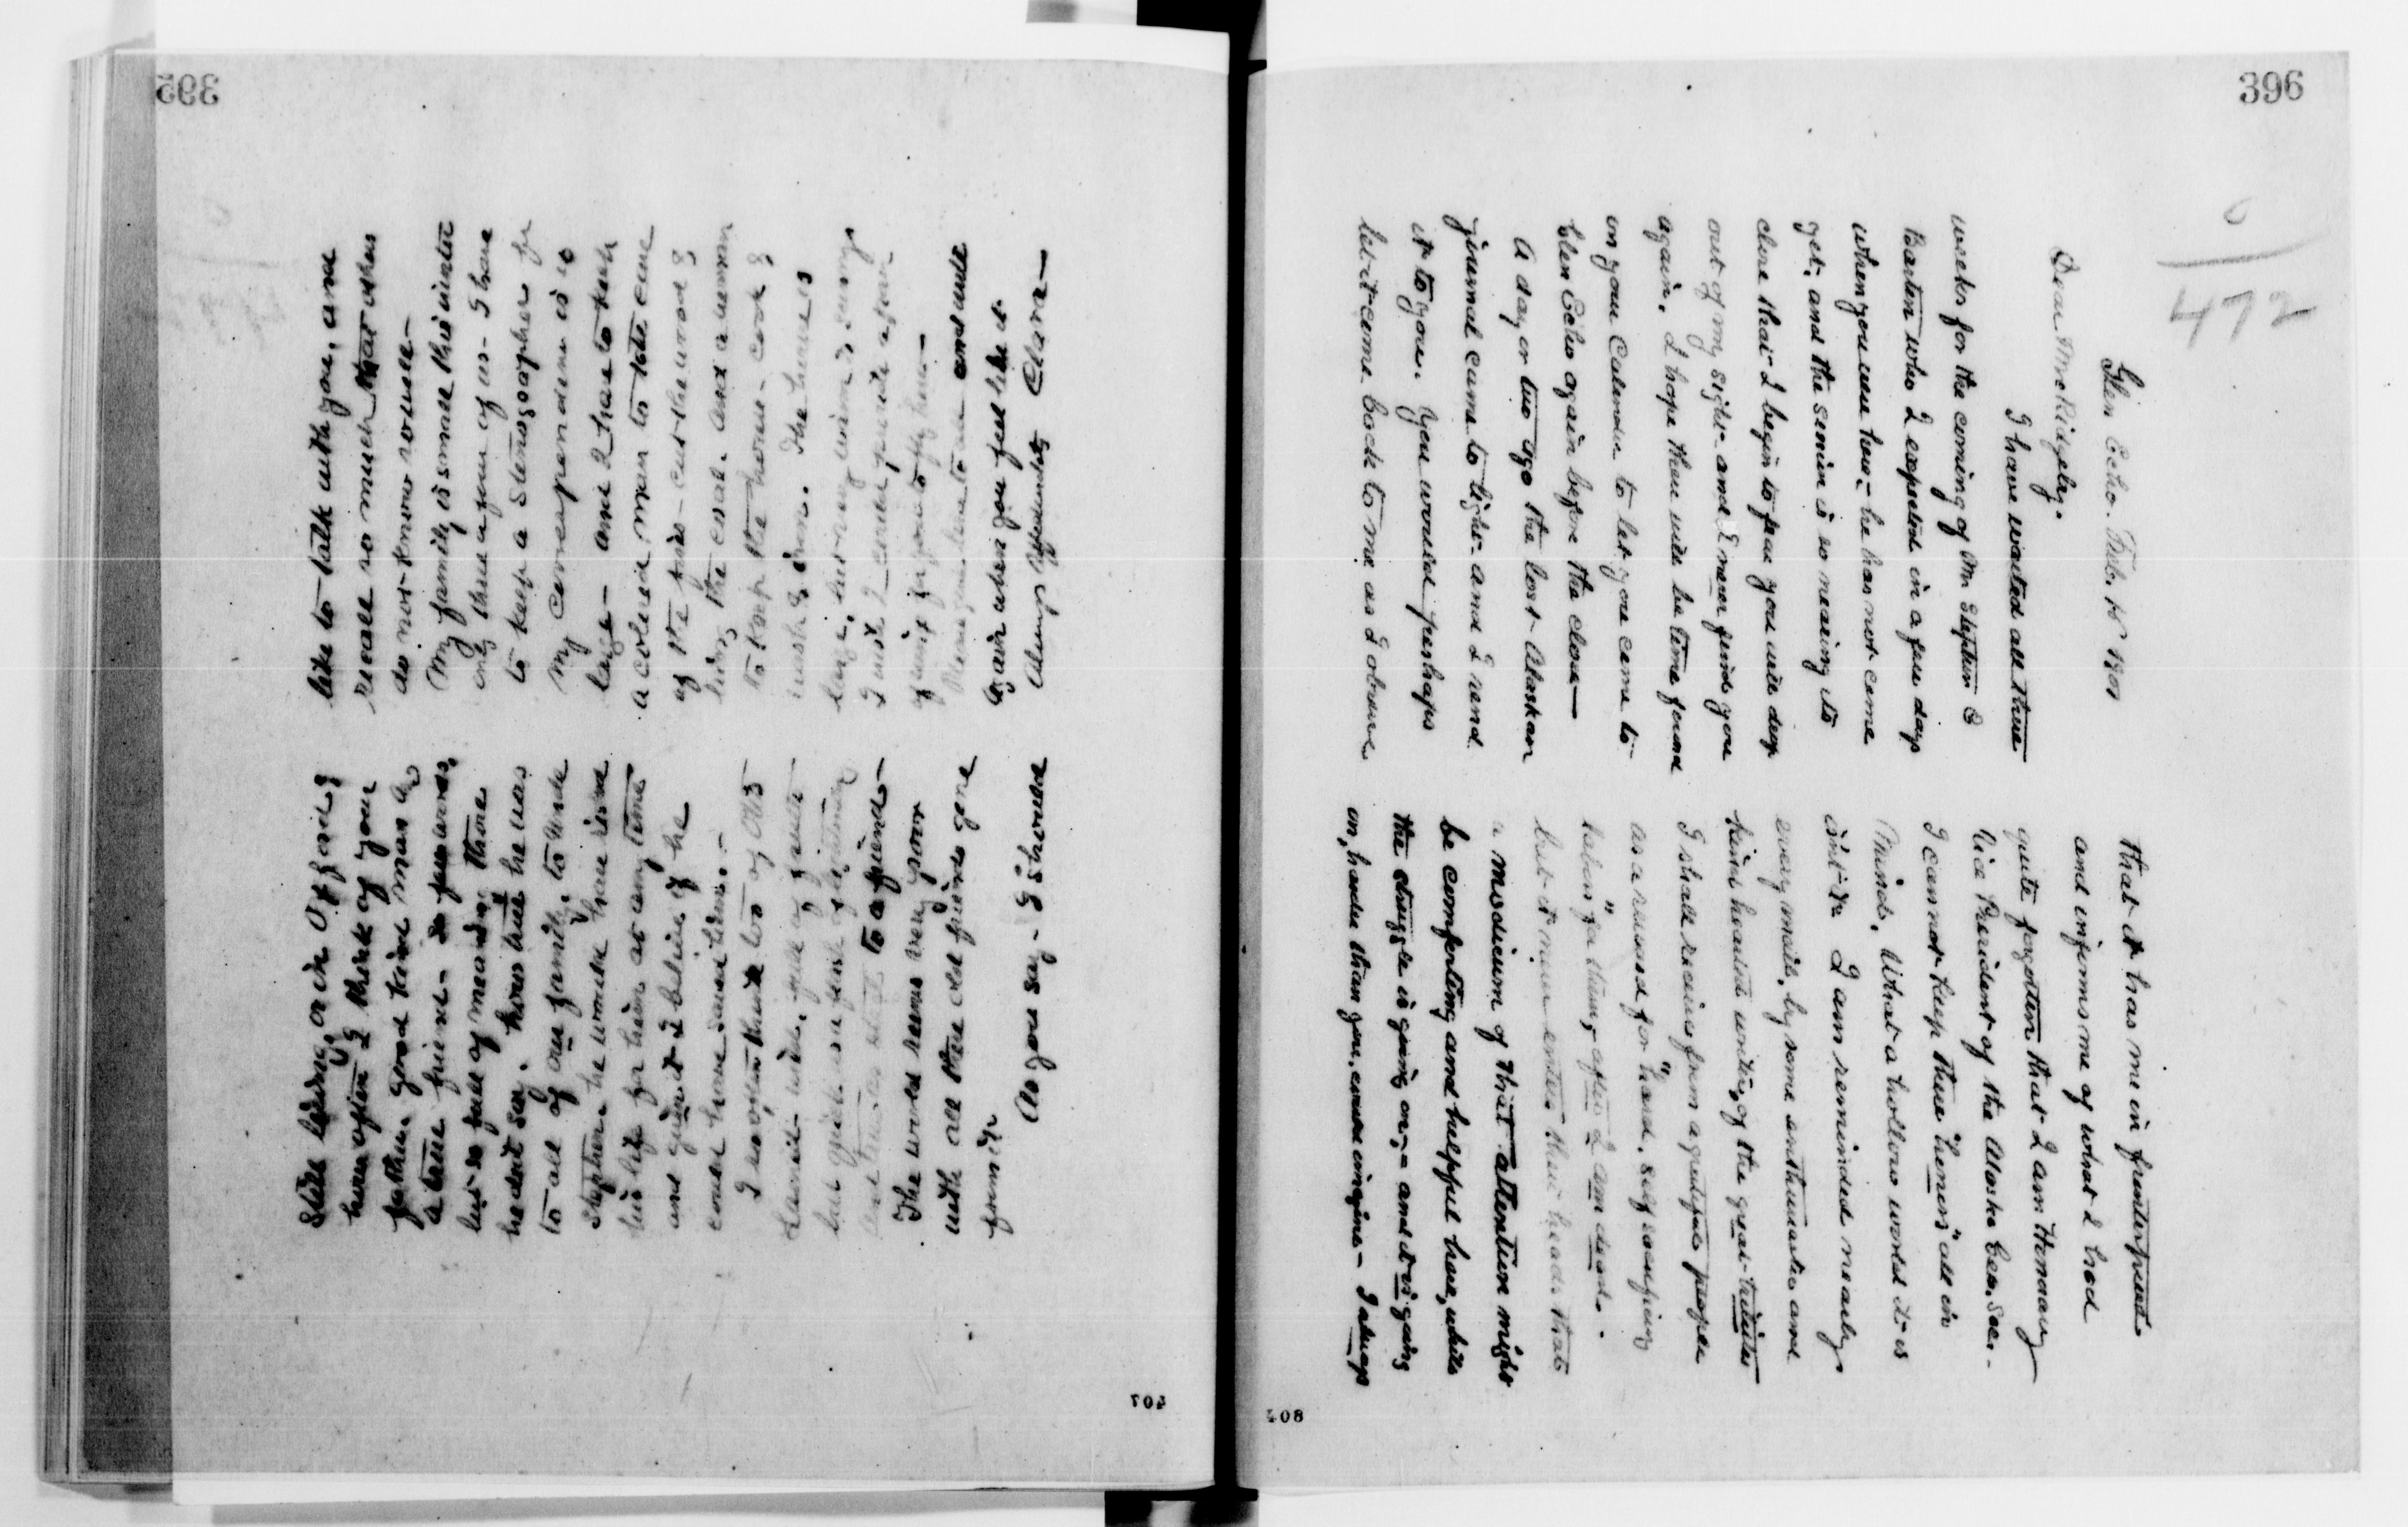 395
Still living, or in Oxford;
how often I think of your
father, good kind man &
a true friend - so few words,
but so full of meaning those
he did say. How true he was
to all of our family, to Uncle
Stephen he would have risked
his life for him at any time
and given it I believe if he
could have saved him. -
I so often think too of old
David - wide, full of faults
but quick
and to a friend -
The world seems very poor
with all these old friends gone
from it.
As you say - I should
like to talk with you, and
recall so much that others
do not know or use -
My family is small this winter
only three a few of us - I have
to keep a stenographer for
my correspondence is so
large - and I have to keep
a colored man to take care
of the fires - cut the wood &
bring the coal. And a woman
to keep the house - cook &
wash & iron. The house is
large,
I wish I could
quiet for you to fly here -
Please give love to all and write
again when you feel like it
Always affectionately Clara -
407
396
6
472
Glen Echo. Feb. 15 1901
Dear Mrs Ridgely.
I have waited all these
weeks for the coming of Mr Stephen E
Barton who I expected in a few days
when you were here - he has not come
yet, and the session is so nearing its
close that I begin to fear you will drop
out of my sight - and I never find you
again. I hope there will be time found
on your Calendar to let you come to
Glen Echo again before the close -
A day or two ago the lost Alaskan
journal came to light - and I send
it to you. You would perhaps
let it come back to me as I observe
that it has me in frontispiece
and informs me of what I had
quite forgotten that I am Honorary
Vice President of the Alaska Geo. Soc. -
I cannot keep these "honors" all in
mind. What a hollow world it is
isn't it I am reminded nearly
every mail, by some enthusiastic and
kind hearted writer, of the great tributes
I shall receive from a grateful people
as a reward for "hard, self sacrificing
labor" for them, after I am dead. -
but it never enters their heads that
a modicum of that attention might
be comforting and helpful here, while
the struggle is going on, - and it is going
on, harder than you can imagine - I always
408